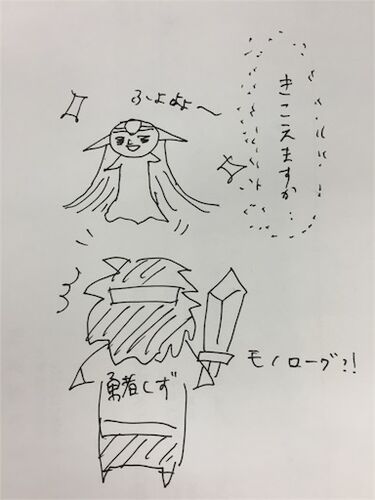 きこえますか…
ふよよよ〜
モノローグ?!
勇者しず